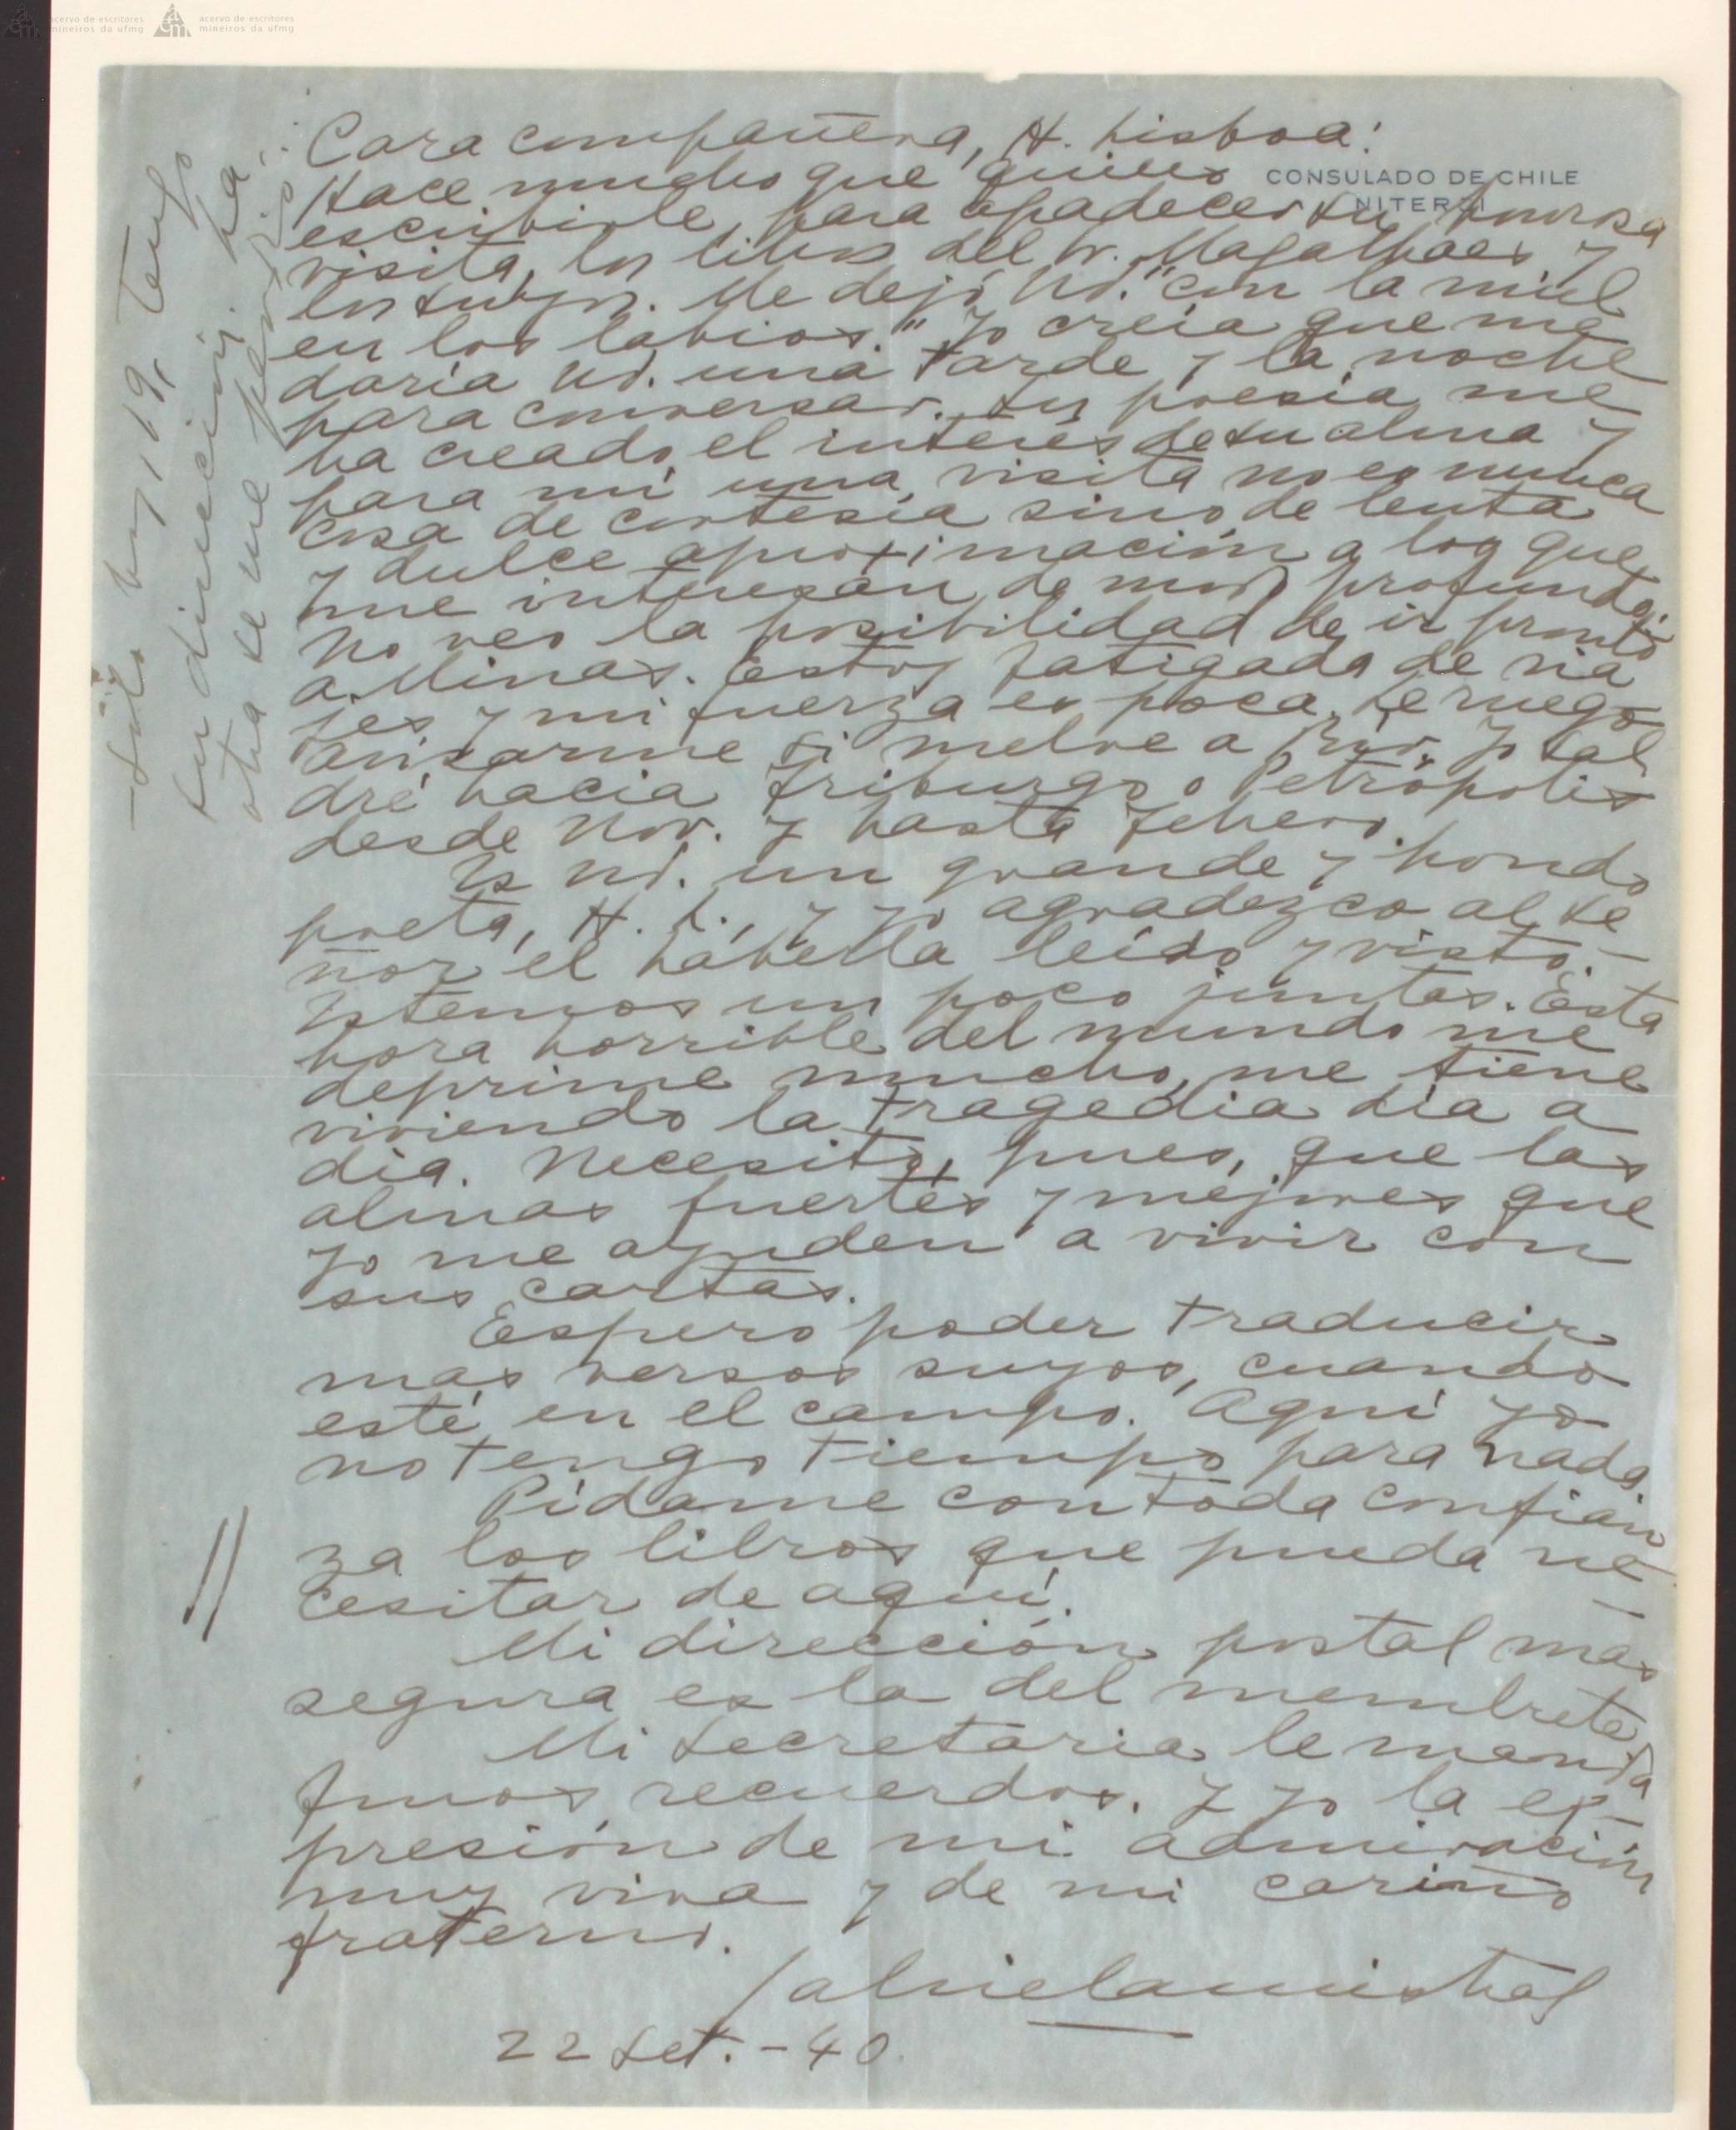 acervo de escritores
mineiros da ufmg
acervo de escritores
mineiros da ufmg
CONSULADO DE CHILE
NITEROI
Cara compañera, H. Lisboa:
Hace mucho que quiero
escribirle para agradecer su
visita, los libros del Sr. Magalhaes y
los suyos. Me dejó Ud. "con la miel
en los labios." Yo creía que me
daría Ud. una tarde y la noche
para conversar. Su poesía me
ha creado el interés de su alma y
para mí una visita no es nunca
cosa de cortesía sino de lenta
y dulce aproximación a los que
me interesan de modo profundo.
No veo la posibilidad de ir pronto
a Minas. Estoy fatigada de via
jes y mi fuerza es poca. Le ruego
avisarme si vuelve a Río. Yo sal
dré hacia Friburgo o Petrópolis
desde Nov. y hasta febrero.
Es Ud. un grande y hondo
poeta, H. L., y yo agradezco al Se
ñor el haberla leído y visto.—
Estemos un poco juntas. Esta
hora horrible del mundo me
deprime mucho, me tiene
viviendo la tragedia día a
día. Necesito, pues, que las
almas fuertes y mejores que
yo me ayuden a vivir con
sus cartas.
Espero poder traducir
más versos suyos, cuando
esté en el campo. Aquí yo
no tengo tiempo para nada.
Pídame con toda confian
za los libros que pueda ne-
cesitar de aquí.
Mi dirección postal mas
segura es la del membrete.
Mi secretaria le manda
finos recuerdos. Y yo la ex-
presión de mi admiración
muy viva y de mi cariño
fraterno.
Gabriela Mistral
22 Set. - 40
—Sólo hoy, 19, tengo
su dirección. La
otra se me perdió.